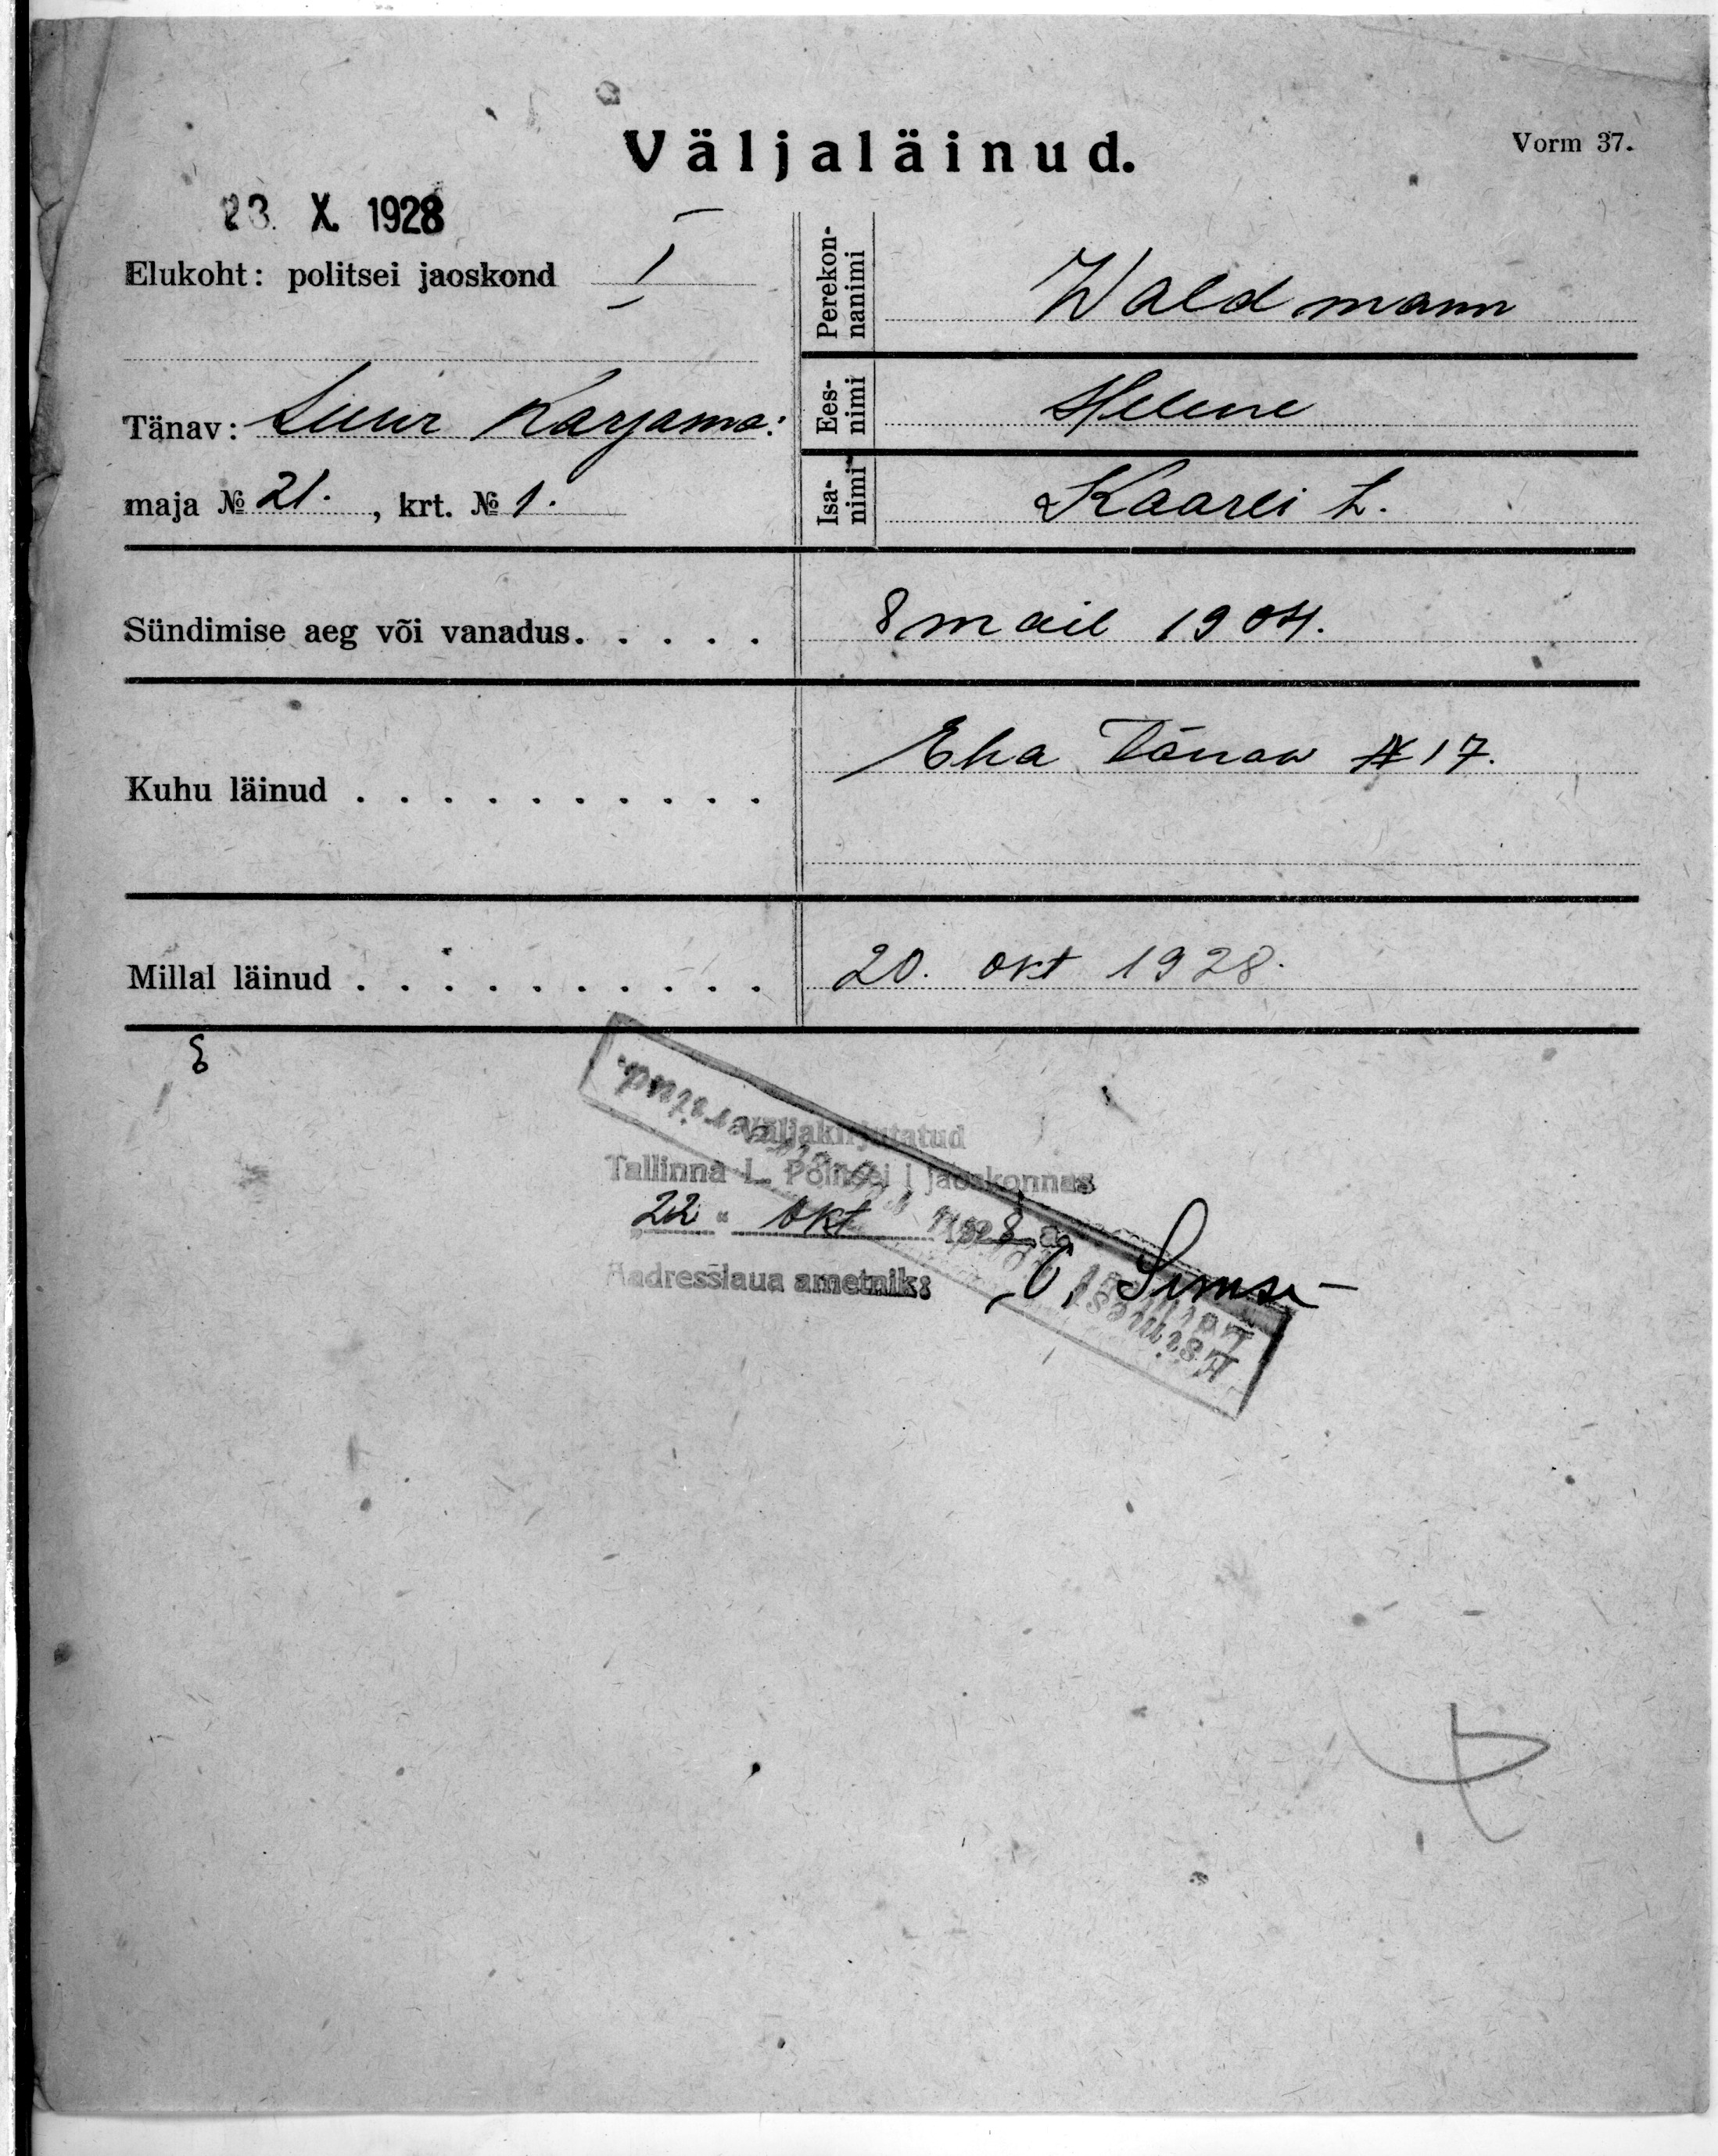 Väljaläinud.
Vorm 37.
23. X. 1928
Elukoht: politsei jaoskond I
Tänav: Suur Karjama:
maja № 21. , krt. № 1.
Perekon-
nanimi
Waldmann
Ees-
nimi
Helene
Isa-
nimi
Kaarli t.
Sündimise aeg või vanadus. . . . . 8 mail 1904.
Kuhu läinud . . . . . . . . . . Eha Tänaw # 17.
Millal läinud . . . . . . . . . . 20. okt 1928.
Väljakirjutatud
Tallinna L. Politsei I jaoskonnas
22 " okt 1928 a.
Aadresslaua ametnik: